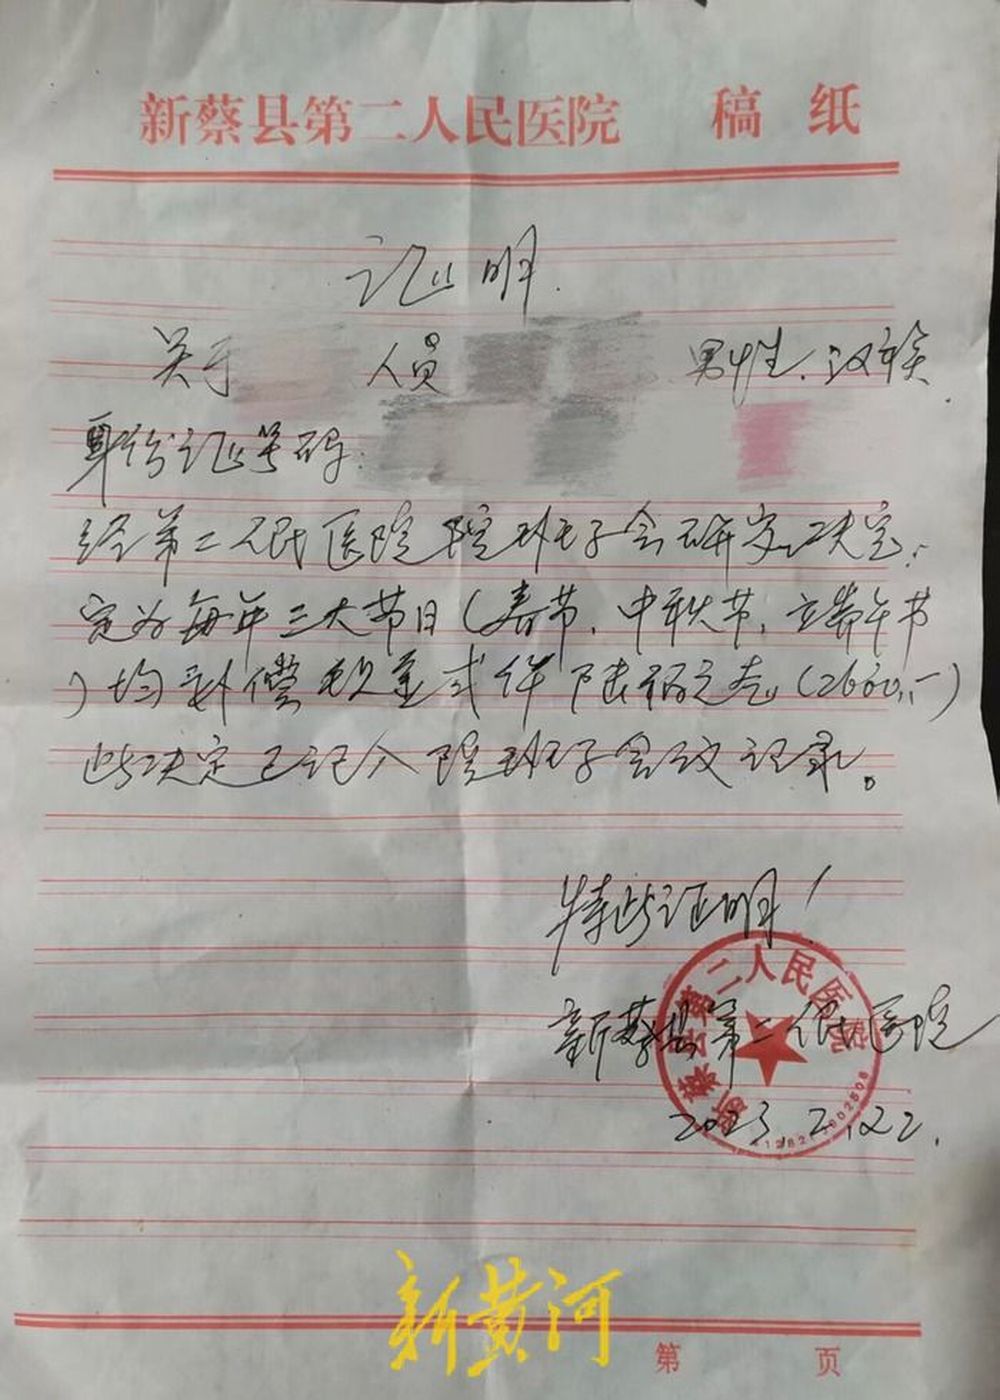 新蔡县第二人民医院 稿纸
证明
关于 人员 男性、汉族
身份证号码:
经第二人民医院院班子会研究决定、
定为每年三大节日(春节、中秋节、端午节
)均补偿现金式仟陆佰元整(2600.-)
此决定已记入院班子会议记录。
特此证明!
新蔡县第二人民医院
新蔡县第二人民医院
2023.2.22.
新黄河
第 页